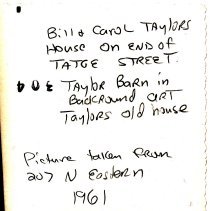 Bill & Carol Taylors
House on END OF
TATGE STREET.
304 Taylor Barn in
Background ART
Taylors old house
Picture taken From
207 N Eastern
1961